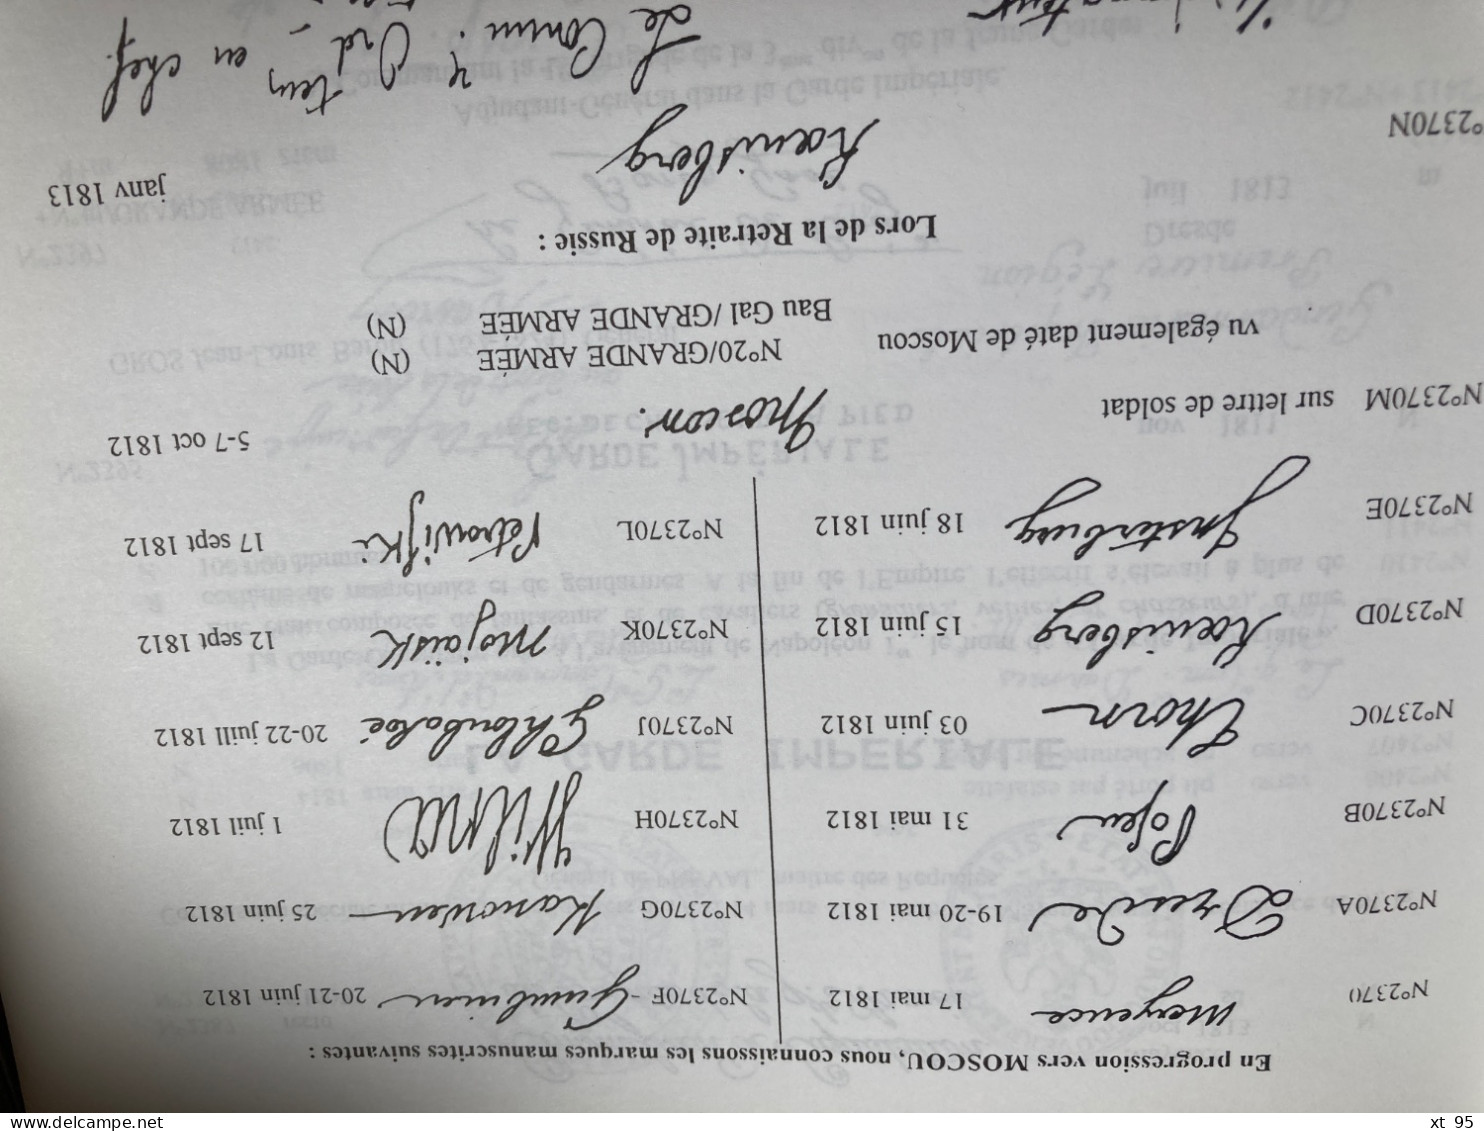 En progression vers MOSCOU, nous connaissons les marques manuscrites suivantes :
N°2370 Mayence 17 mai 1812
N°2370A Dresde 19-20 mai 1812
N°2370B Posen 31 mai 1812
N°2370C Thorn 03 juin 1812
N°2370D Kœnisberg 15 juin 1812
N°2370E Insterburg 18 juin 1812
N°2370F - Gumbinen 20-21 juin 1812
N°2370G Kanowen 25 juin 1812
N°2370H Wilna 1 juil 1812
N°2370J Ghloubokoé 20-22 juill 1812
N°2370K Mojaïsk 12 sept 1812
N°2370L Petrowijki 17 sept 1812
N°2370M sur lettre de soldat Moscou. 5-7 oct 1812
vu également daté de Moscou
N°20/GRANDE ARMÉE (N)
Bau Gal /GRANDE ARMÉE (N)
Lors de la Retraite de Russie :
°2370N Kœnisberg janv 1813
Le Comm. Ord en chef.
delcampe.net
xt_95